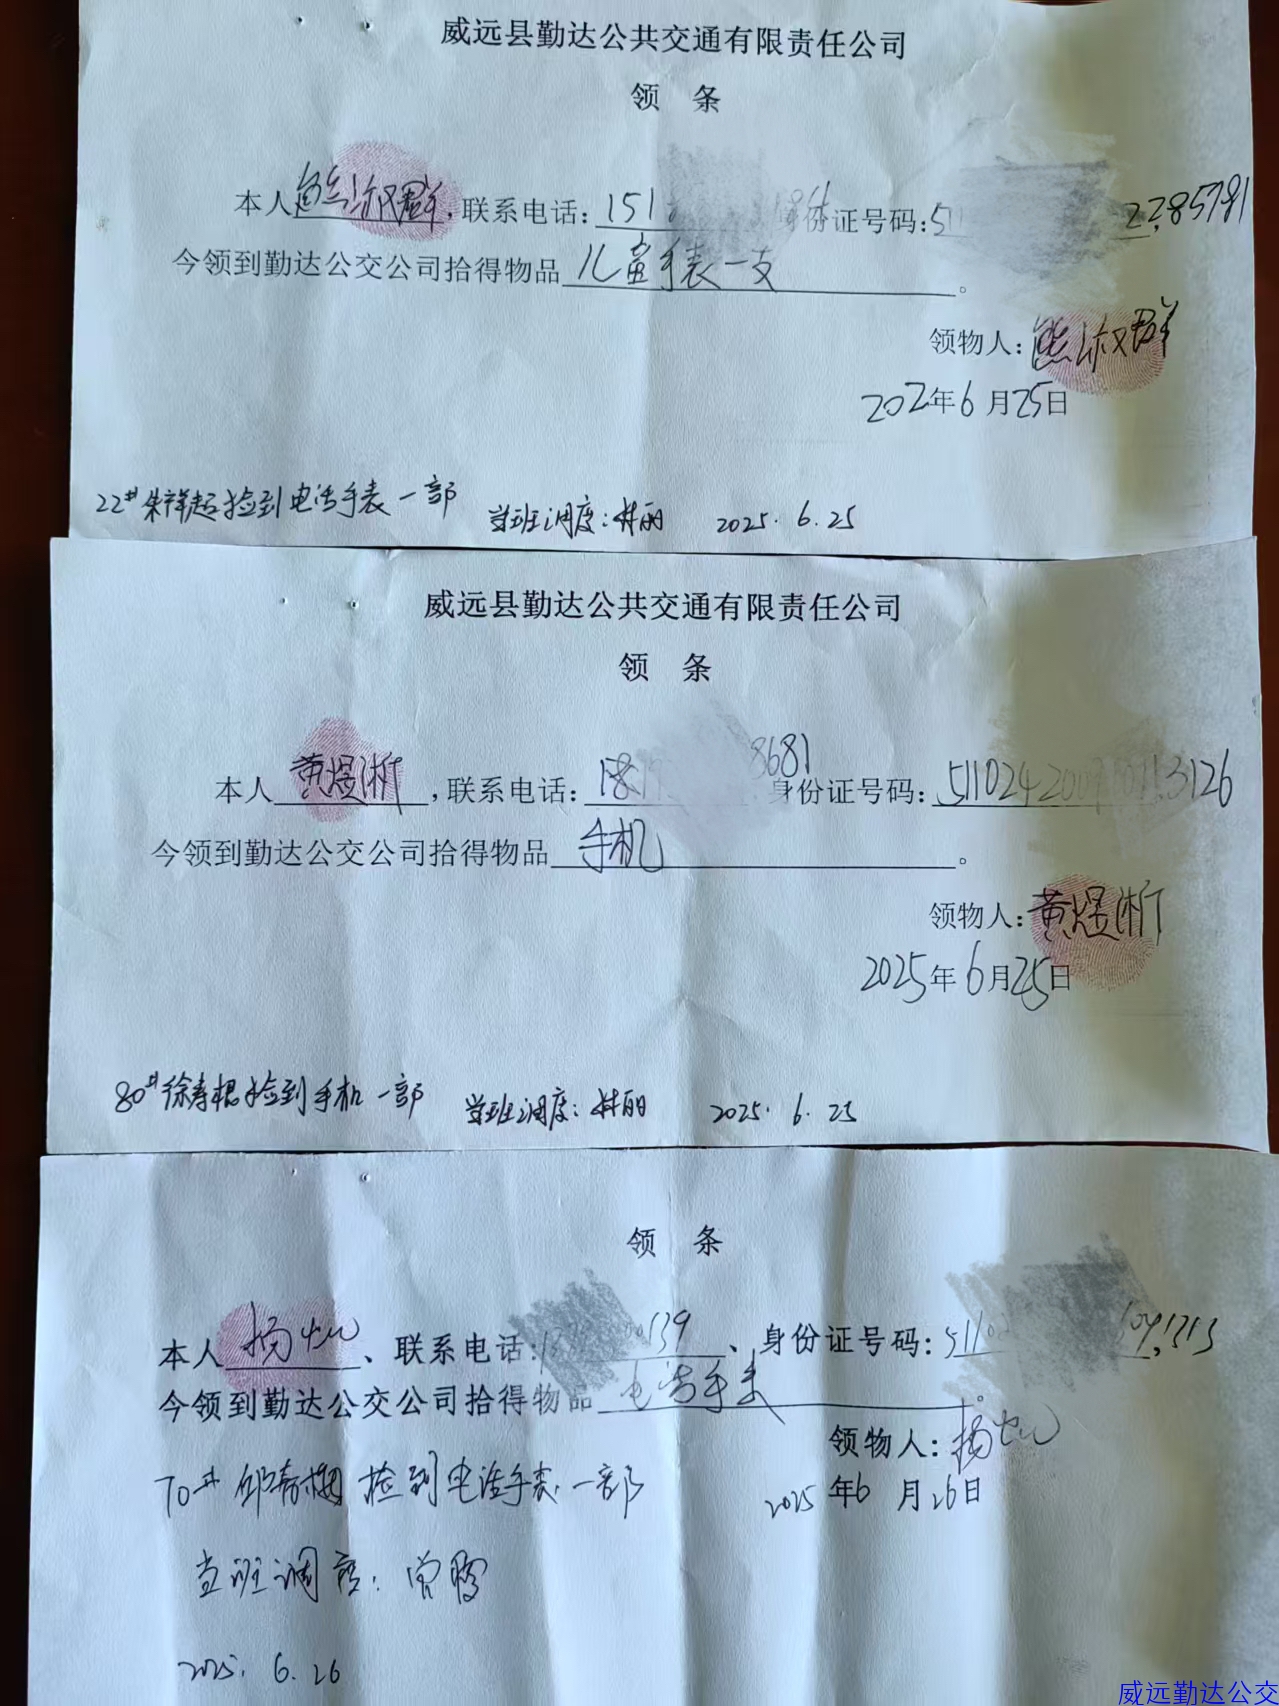 威远县勤达公共交通有限责任公司
领 条
本人熊淑群,联系电话:151 身份证号码:511 2285781
今领到勤达公交公司拾得物品儿童手表一支。
领物人:熊淑群
202年6月25日
22#朱祥起捡到电话手表一部 当班调度:林丽 2025.6.25
威远县勤达公共交通有限责任公司
领 条
本人黄煜淅,联系电话:181 8681身份证号码:511024200 3126
今领到勤达公交公司拾得物品手机。
领物人:黄煜淅
2025年6月25日
80#徐寿根捡到手机一部 当班调度:林丽 2025.6.25
领 条
本人杨灿、联系电话: 139、身份证号码:51102 1313
今领到勤达公交公司拾得物品电话手表。
领物人:杨灿
70#邱 捡到电话手表一部 2025年6月26日
当班调度:曾鹏
2025.6.26
威远勤达公交